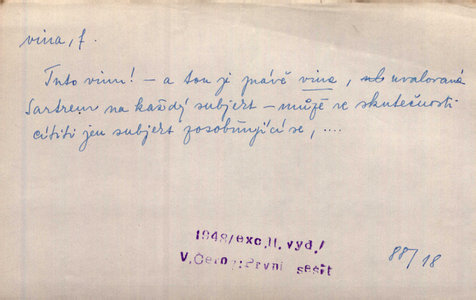 vina, f.
Tuto vinu! – a tou je právě vina, uvalovaná
Sartrem na každý subjekt – může ve skutečnosti
cítiti jen subjekt zosobňující se, ....
1948/exc. II. vyd./
V. Černý: První sešit
88/18